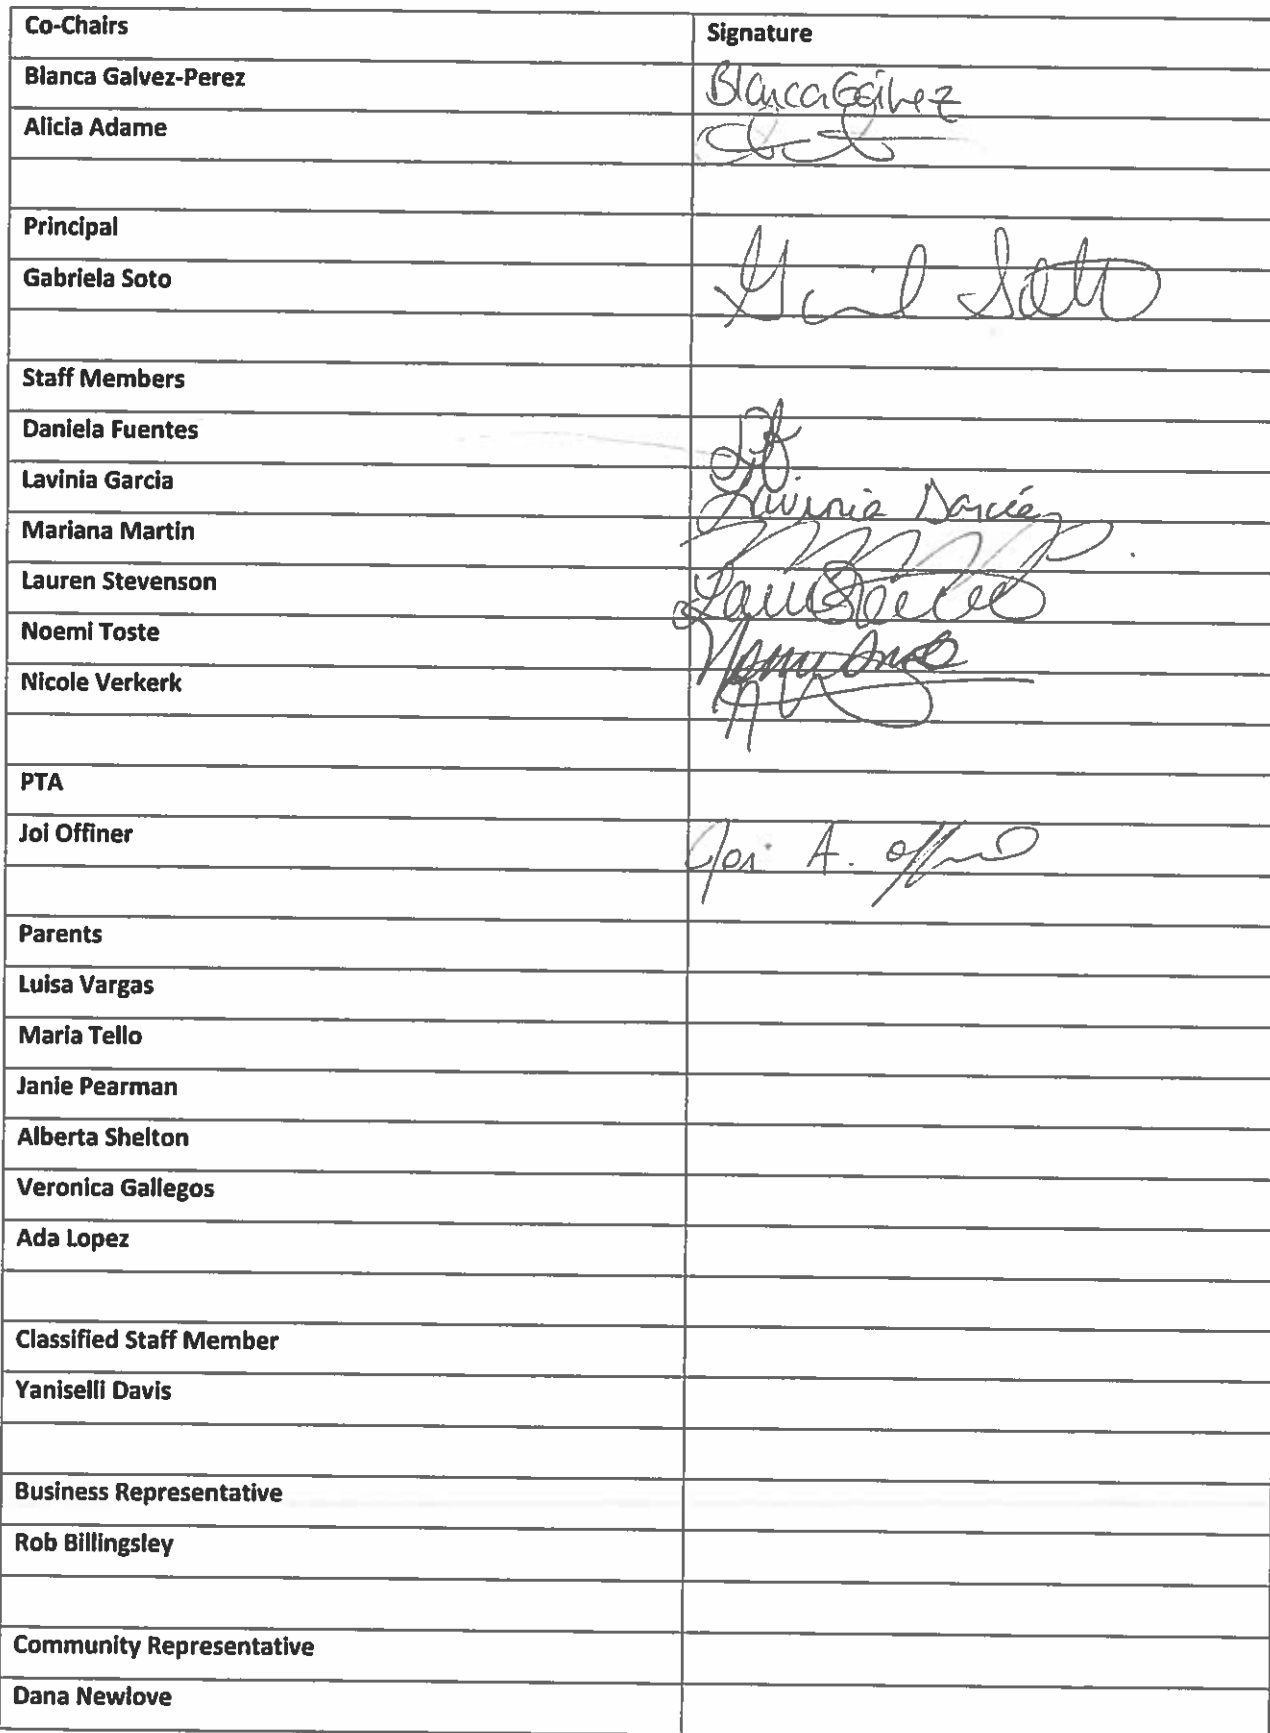 Co-Chairs Signature
Blanca Galvez-Perez Blanca Gálvez
Alicia Adame
Principal
Gabriela Soto
Staff Members
Daniela Fuentes
Lavinia Garcia Lavinia Garcia
Mariana Martin
Lauren Stevenson
Noemi Toste
Nicole Verkerk
PTA
Joi Offiner Joi A.
Parents
Luisa Vargas
Maria Tello
Janie Pearman
Alberta Shelton
Veronica Gallegos
Ada Lopez
Classified Staff Member
Yaniselli Davis
Business Representative
Rob Billingsley
Community Representative
Dana Newlove